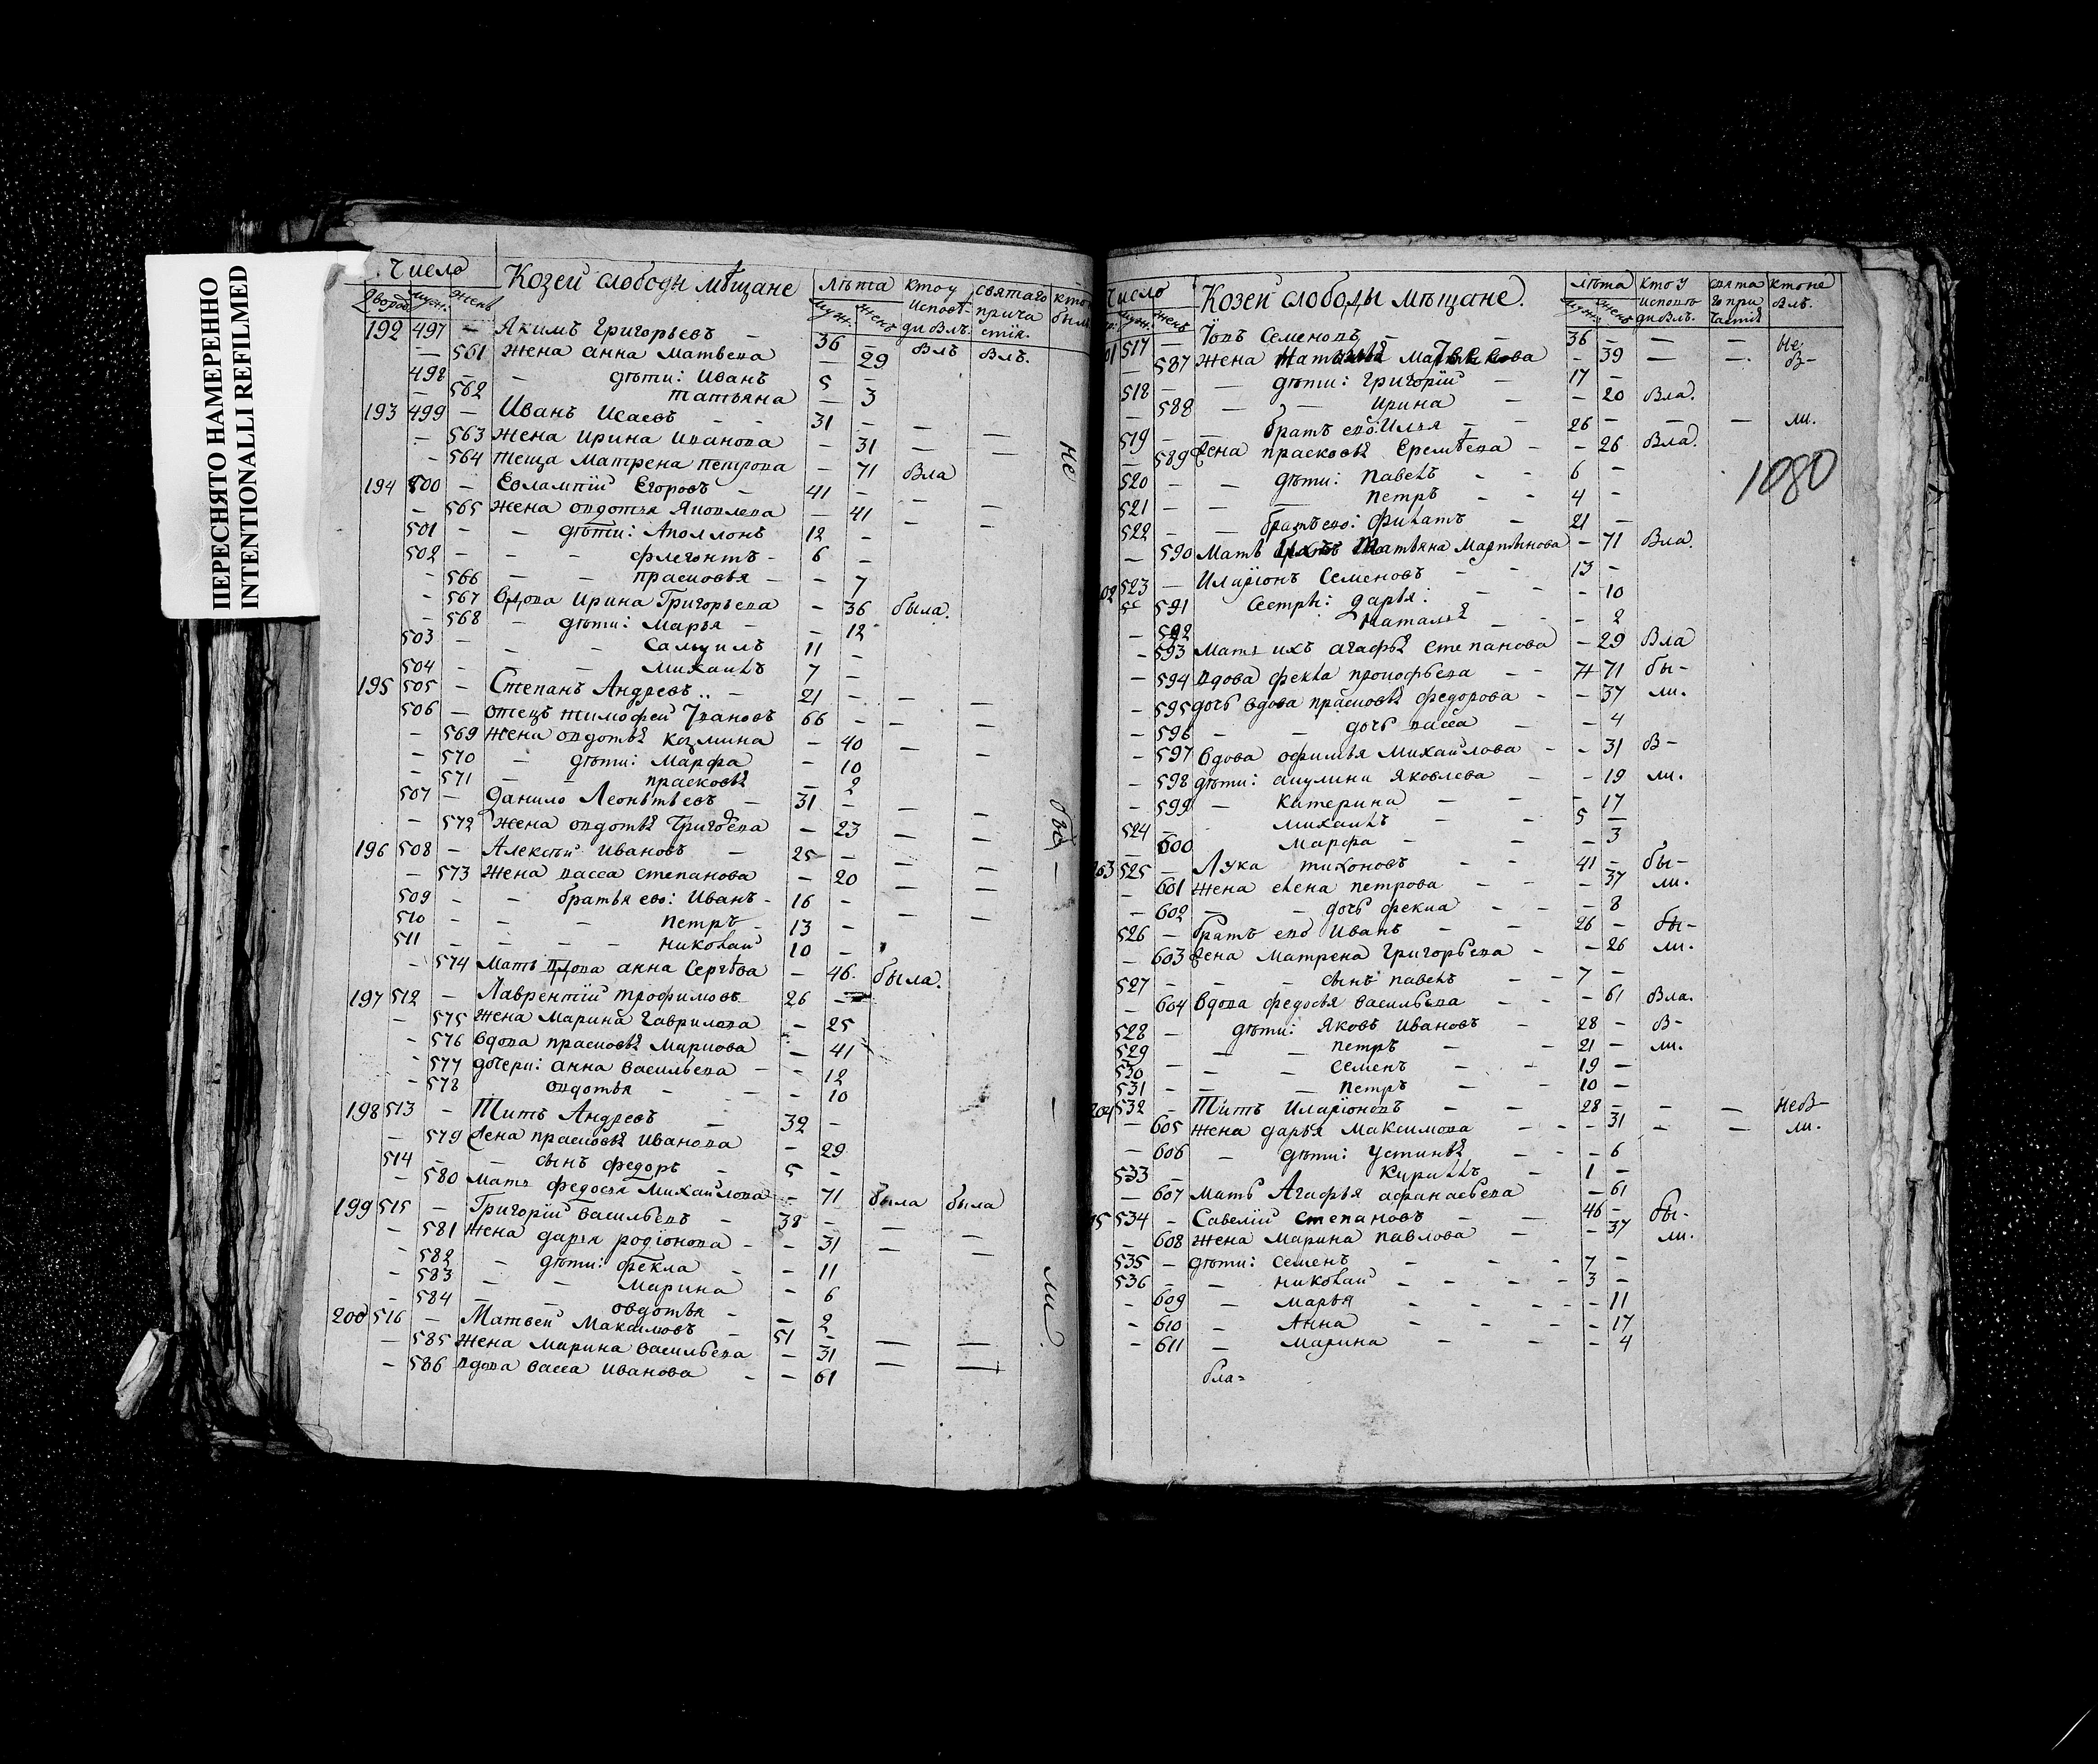 ПЕРЕСНЯТО НАМЕРЕННО
INTENTIONALLI REFILMED
Число Козей слободы мѣщане лѣта кто у святаго кто
дворов муж. женъ муж. женъ исповѣди былъ причастія
192 497 – Якимъ Григорьевъ – 36 – былъ былъ.
– 561 жена анна матвеева – 29
498 – – дѣти: Иванъ 5 –
– 562 татьяна – 3
193 499 – Иванъ Исаевъ – – 31 – – –
– 563 жена ирина иванова – 31 – –
– 564 теща матрена петрова – 71 Была
194 500 – Евлампій Егоровъ – 41 – – –
– 565 жена овдотья Яковлева – 41 – –
501 – – дѣти: Аполлонъ 12 –
502 – – флегонтъ – 6 –
– 566 – – прасковья – – 7
– 567 вдова ирина Григорьева – 36 была.
– 568 – дѣти: Марья – – 12
503 – – Самуилъ 11 –
504 – – михаилъ 7 –
195 505 – Степанъ Андреевъ – 21 – – –
506 – отецъ тимофей Ивановъ 66 – – –
– 569 жена овдотья козмина – 40 – –
– 570 – дѣти: Марфа – 10
– 571 – – прасковья – 2
507 – данило Леонтьевъ – 31 – – –
– 572 жена овдотья Григорьева – 23 – –
196 508 – Алексѣй Ивановъ – 25 – – –
– 573 жена васса степанова – 20 – –
509 – – братья ево: Иванъ – 16 – – –
510 – – – петръ – 13 –
511 – – – николай 10 –
– 574 мать вдова анна Сергѣева – 46. была.
197 512 – Лаврентій трофимовъ 26 –
– 575 жена Марина гаврилова – 25
– 576 вдова прасковья Маркова – 41
– 577 дочери: анна васильева – – 12
– 578 овдотья – – – 10
198 513 – Титъ Андреевъ – 32 –
– 579 жена прасковья иванова – 29
514 – – сынъ федоръ – 5 –
– 580 мать федосья Михайлова – 71 была была
199 515 – Григорій васильевъ – 38 – – –
– 581 жена дарья родіонова – – 31 – –
– 582 – дѣти: фекла – – 11
– 583 – – марина – 6
– 584 – – овдотья – – 2
200 516 – Матвей Максимовъ – 51 – – –
– 585 жена марина васильева – 31 – –
– 586 вдова васса иванова – – 61
не
бы –
–
ли
Число Козей слободы мѣщане. лѣта кто у свята кто не
муж. женъ муж. женъ исповѣди былъ. го причастія былъ.
01 517 – Іовъ Семеновъ – – 36 – – – не
– 587 жена – 39 – – б–
518 – – дѣти: григорій – 17 –
– 588 – – ирина – – 20 Была.
519 – – братъ ево: Илья – – 26 – – – ли.
– 589 жена прасковья Еремѣева – – 26 Была.
1080
520 – – дѣти: павелъ – – 6 –
521 – – – петръ – – 4 –
522 – – братъ ево: филатъ – 21 –
– 590 Мать татьяна Мартынова – 71 Была.
02 523 – Иларіонъ Семеновъ – – 13 –
– 591 Сестры: дарья: – – – 10
– 592 наталья – – – 2
– 593 мать ихъ агафья степанова – 29 Была
– 594 вдова фекла прокофьева – – 71 бы–
– 595 дочь вдова прасковья федорова – – 37 ли.
– 596 – – дочь васса – – 4
– 597 вдова офимья Михайлова – – 31 б–
– 598 дѣти: акулина Яковлева – – 19 ли.
– 599 – катерина – – – 17
524 – михаилъ – – 5 –
– 600 марфа – – – 3
203 525 – Лука тихоновъ – – 41 – бы–
– 601 жена елена петрова – – – 37 ли.
– 602 – – дочь фекла – – – 8
526 – братъ ево Иванъ – – 26 – бы–
– 603 жена Матрена Григорьева – – 26 ли.
527 – – – сынъ павелъ – – 7 –
– 604 вдова федосья васильева – – – 61 Была.
528 – дѣти: Яковъ Ивановъ – 28 – б–
529 – – петръ – – 21 – ли.
530 – – – семенъ – – 19 –
531 – – – петръ – – 10 –
204 532 – Титъ Иларіоновъ – – 28 – – – неб–
– 605 жена дарья Максимова – – – 31 – – ли.
– 606 – дѣти: устинья – – – 6
533 – – Кириллъ – 1 –
– 607 мать Агафья афанасьева – 61
05 534 – Савелій степановъ – – 46 – бы–
– 608 жена марина павлова – – 37 ли.
535 – дѣти: семенъ – – – 7 –
536 – – николай – – – – 3 –
– 609 – марья – – – – – 11
– 610 – Анна – – – – 17
– 611 – Марина – – – 4
бла=